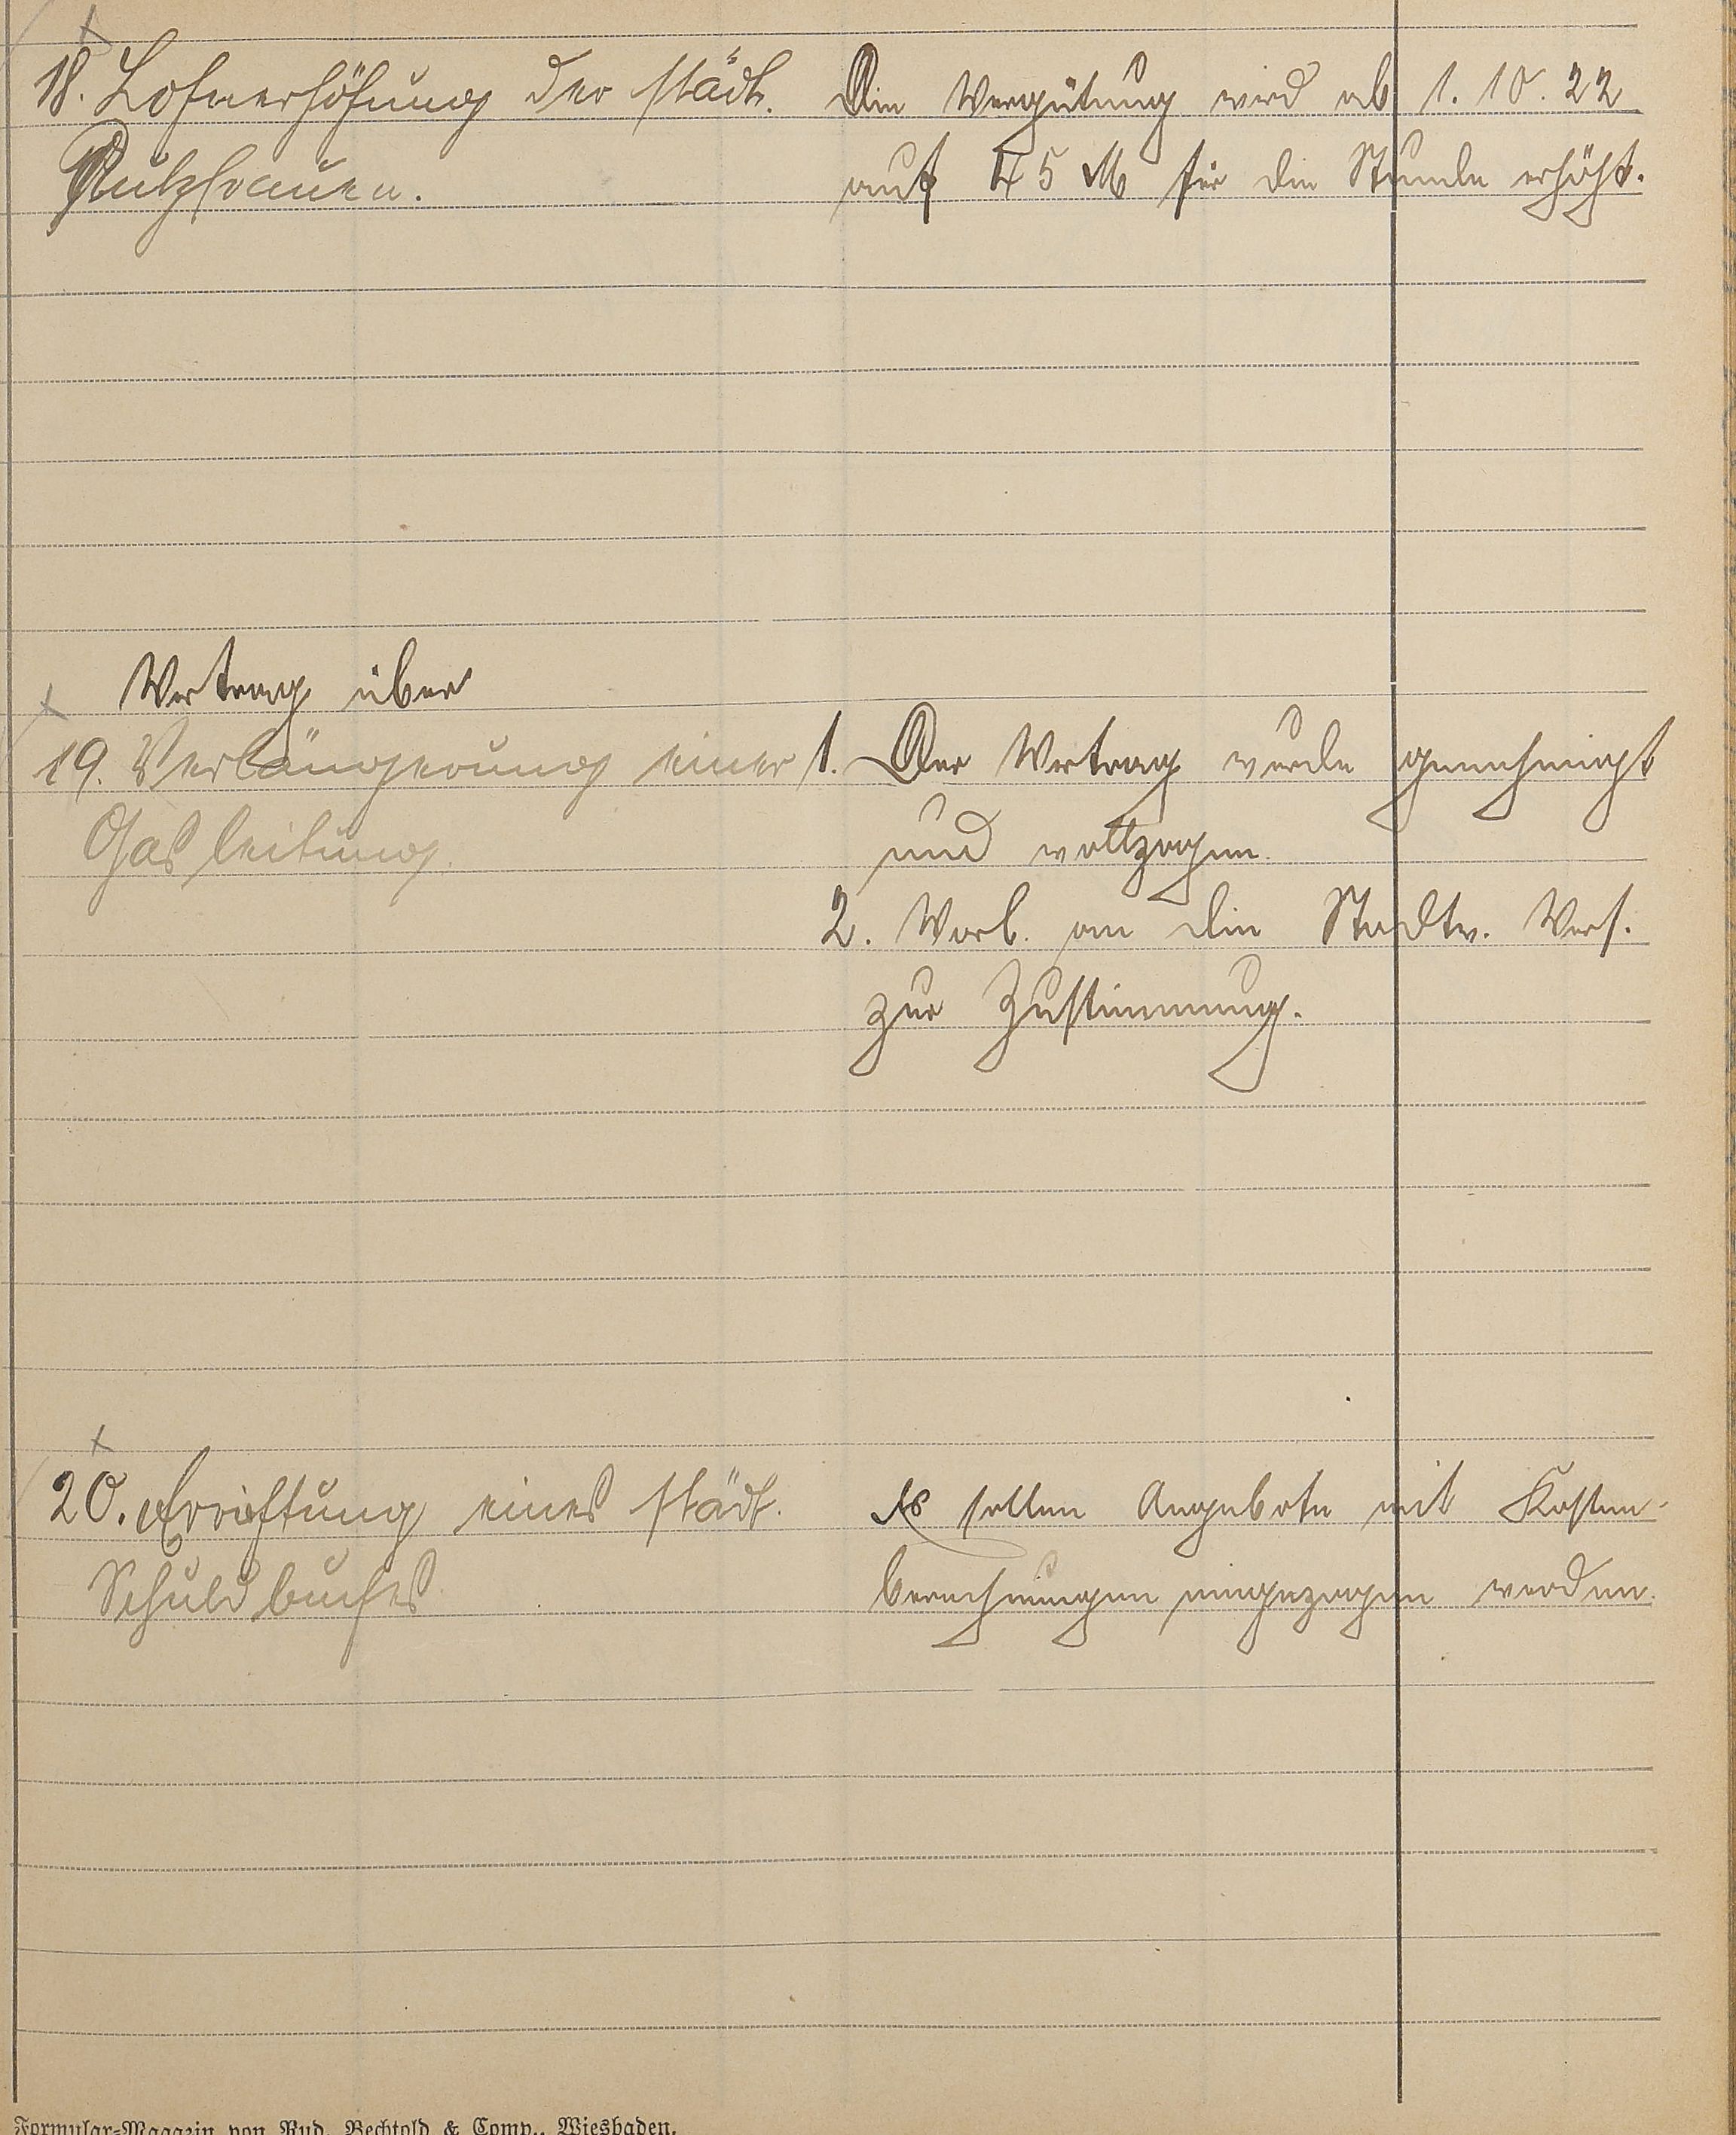 18. Lohnerhöhung der städt.
Putzfrauen.
Die Vergütung wird ab 1. 10. 22
auf 45 M für die Stunde erhöht.
Vertrag über
19. Verlängerung einer
Gasleitung.
1. Der Vertrag wurde genehmigt
und vollzogen.
2. Vorl. an die Stadtv. Vers.
zur Zustimmung.
20. Errichtung eines städt.
Schuldbuches
Es sollen Angebote mit Kosten-
berechnungen eingezogen werden.
Formular-Magazin von Rud. Bechtold & Comp., Wiesbaden.